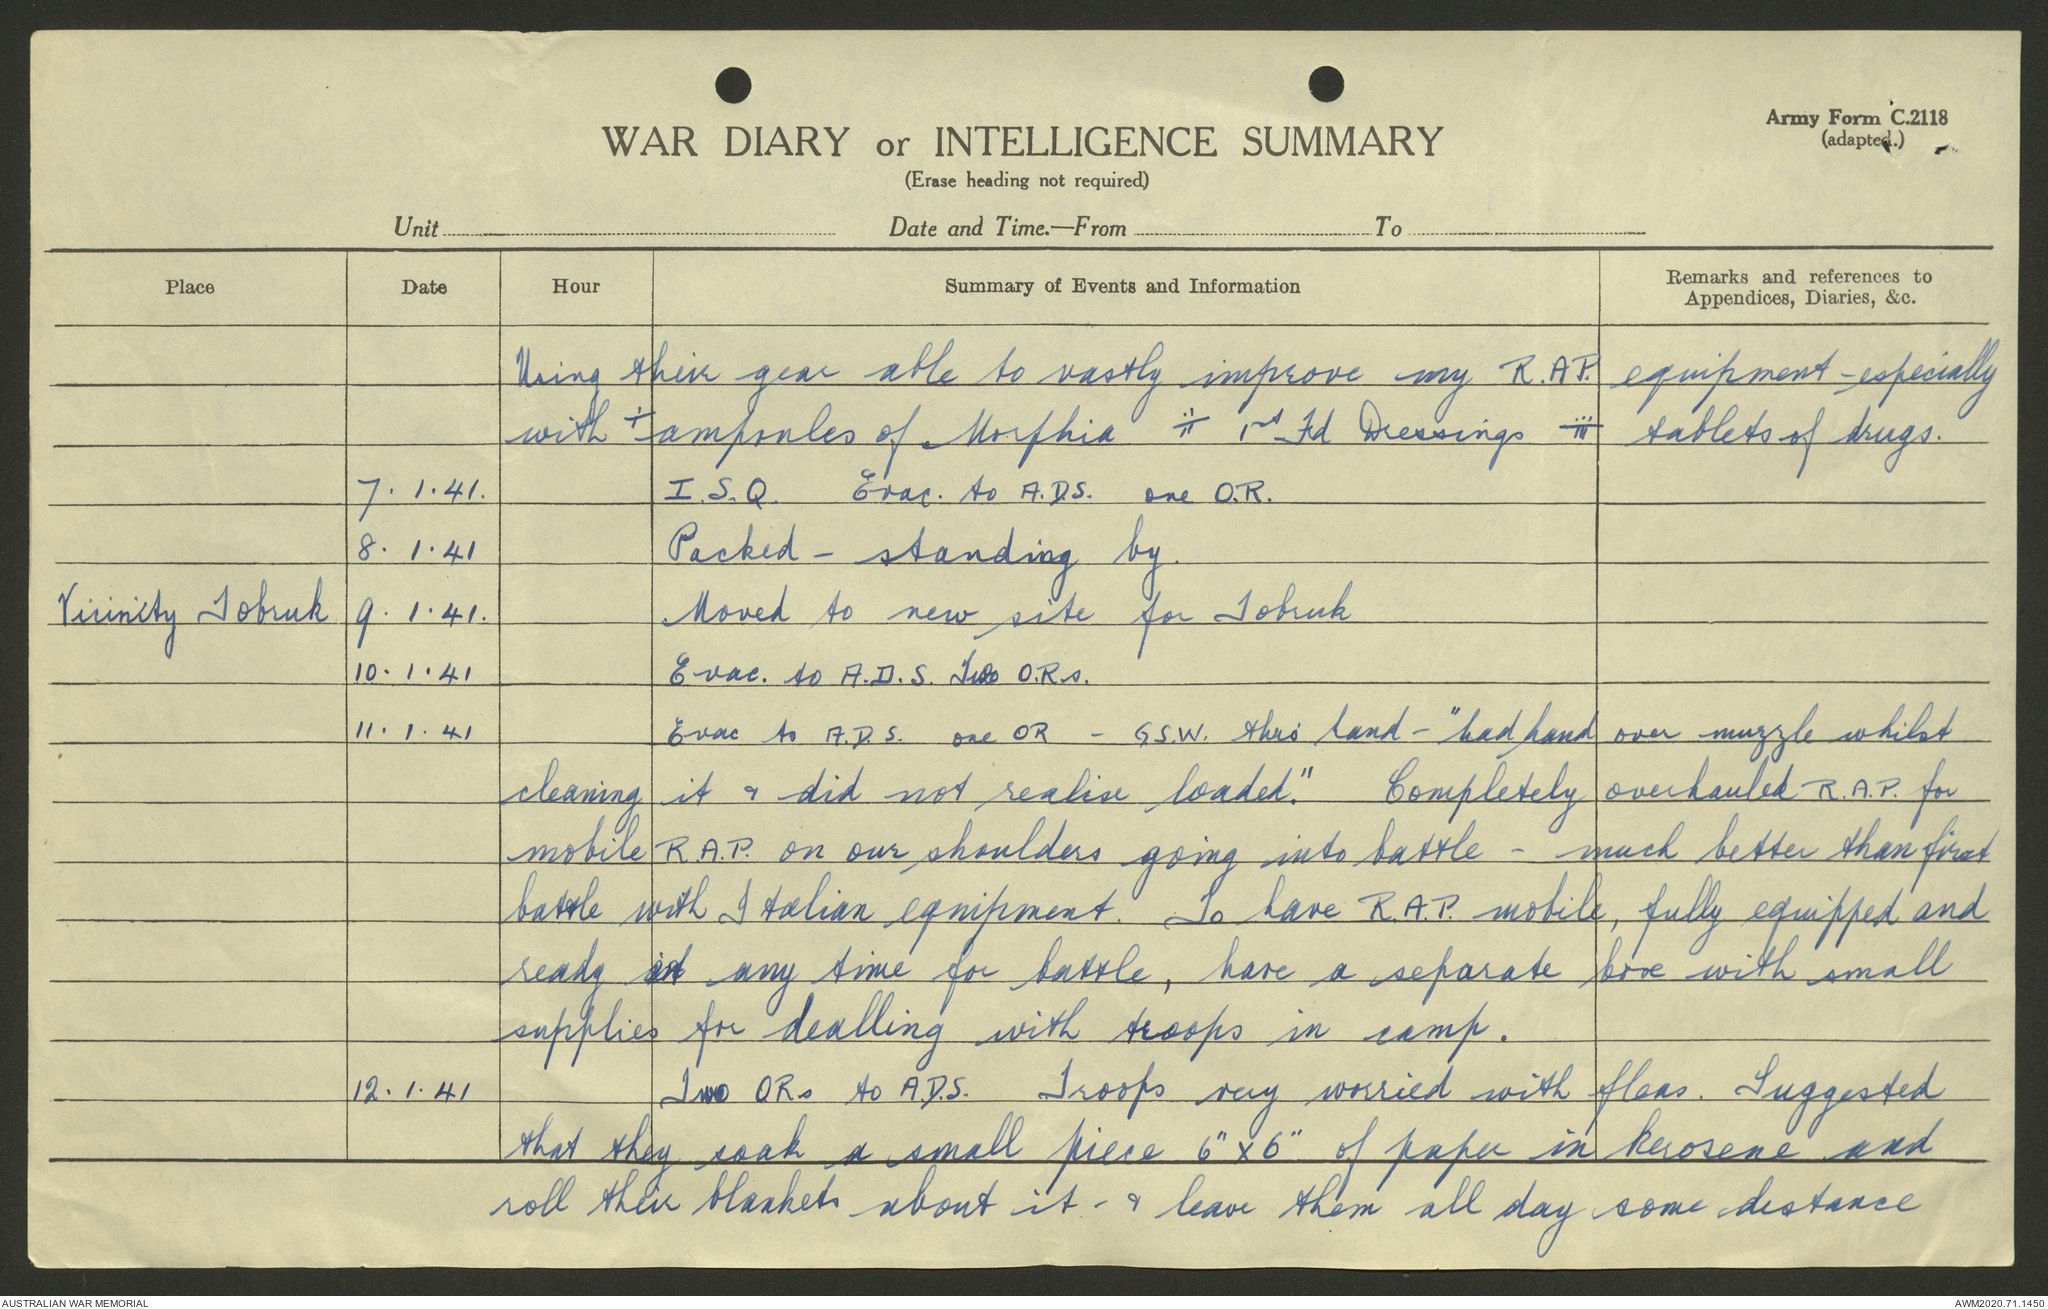 Army Form C.2118
(adapted.)
WAR DIARY or INTELLIGENCE SUMMARY
(Erase heading not required)
Unit Date and Time.—From To
Place Date Hour Summary of Events and Information Remarks and references to Appendices, Diaries, &c.
Using their gear able to vastly improve my R.A.P. equipment - especially
with i ampoules of Morphia ii 1st Fd Dressings iii tablets of drugs.
7.1.41. I.S.Q. Evac. to A.D.S. one O.R.
8.1.41 Packed - standing by.
Vicinity Tobruk 9.1.41. Moved to new site for Tobruk
10.1.41 Evac. to A.D.S. Two O.R.s.
11.1.41 Evac to A.D.S. one OR - G.S.W. thro' hand - "had hand over muzzle whilst
cleaning it & did not realise loaded." Completely overhauled R.A.P. for
mobile R.A.P. on our shoulders going into battle - much better than first
battle with Italian equipment. To have R.A.P. mobile, fully equipped and
ready at any time for battle, have a separate box with small
supplies for dealling with troops in camp.
12.1.41 Two ORs to A.D.S. Troops very worried with fleas. Suggested
that they soak a small piece 6" x 6" of paper in kerosene and
roll their blankets about it - & leave them all day some distance
AUSTRALIAN WAR MEMORIAL AWM2020.71.1450